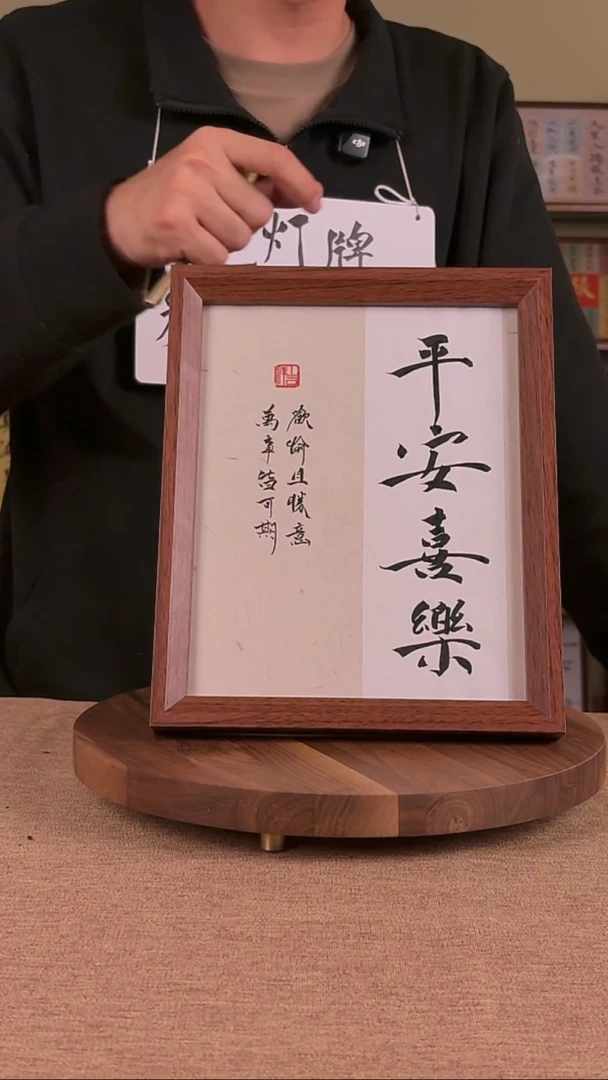 平安喜樂
歡愉且勝意
萬事皆可期
灯牌